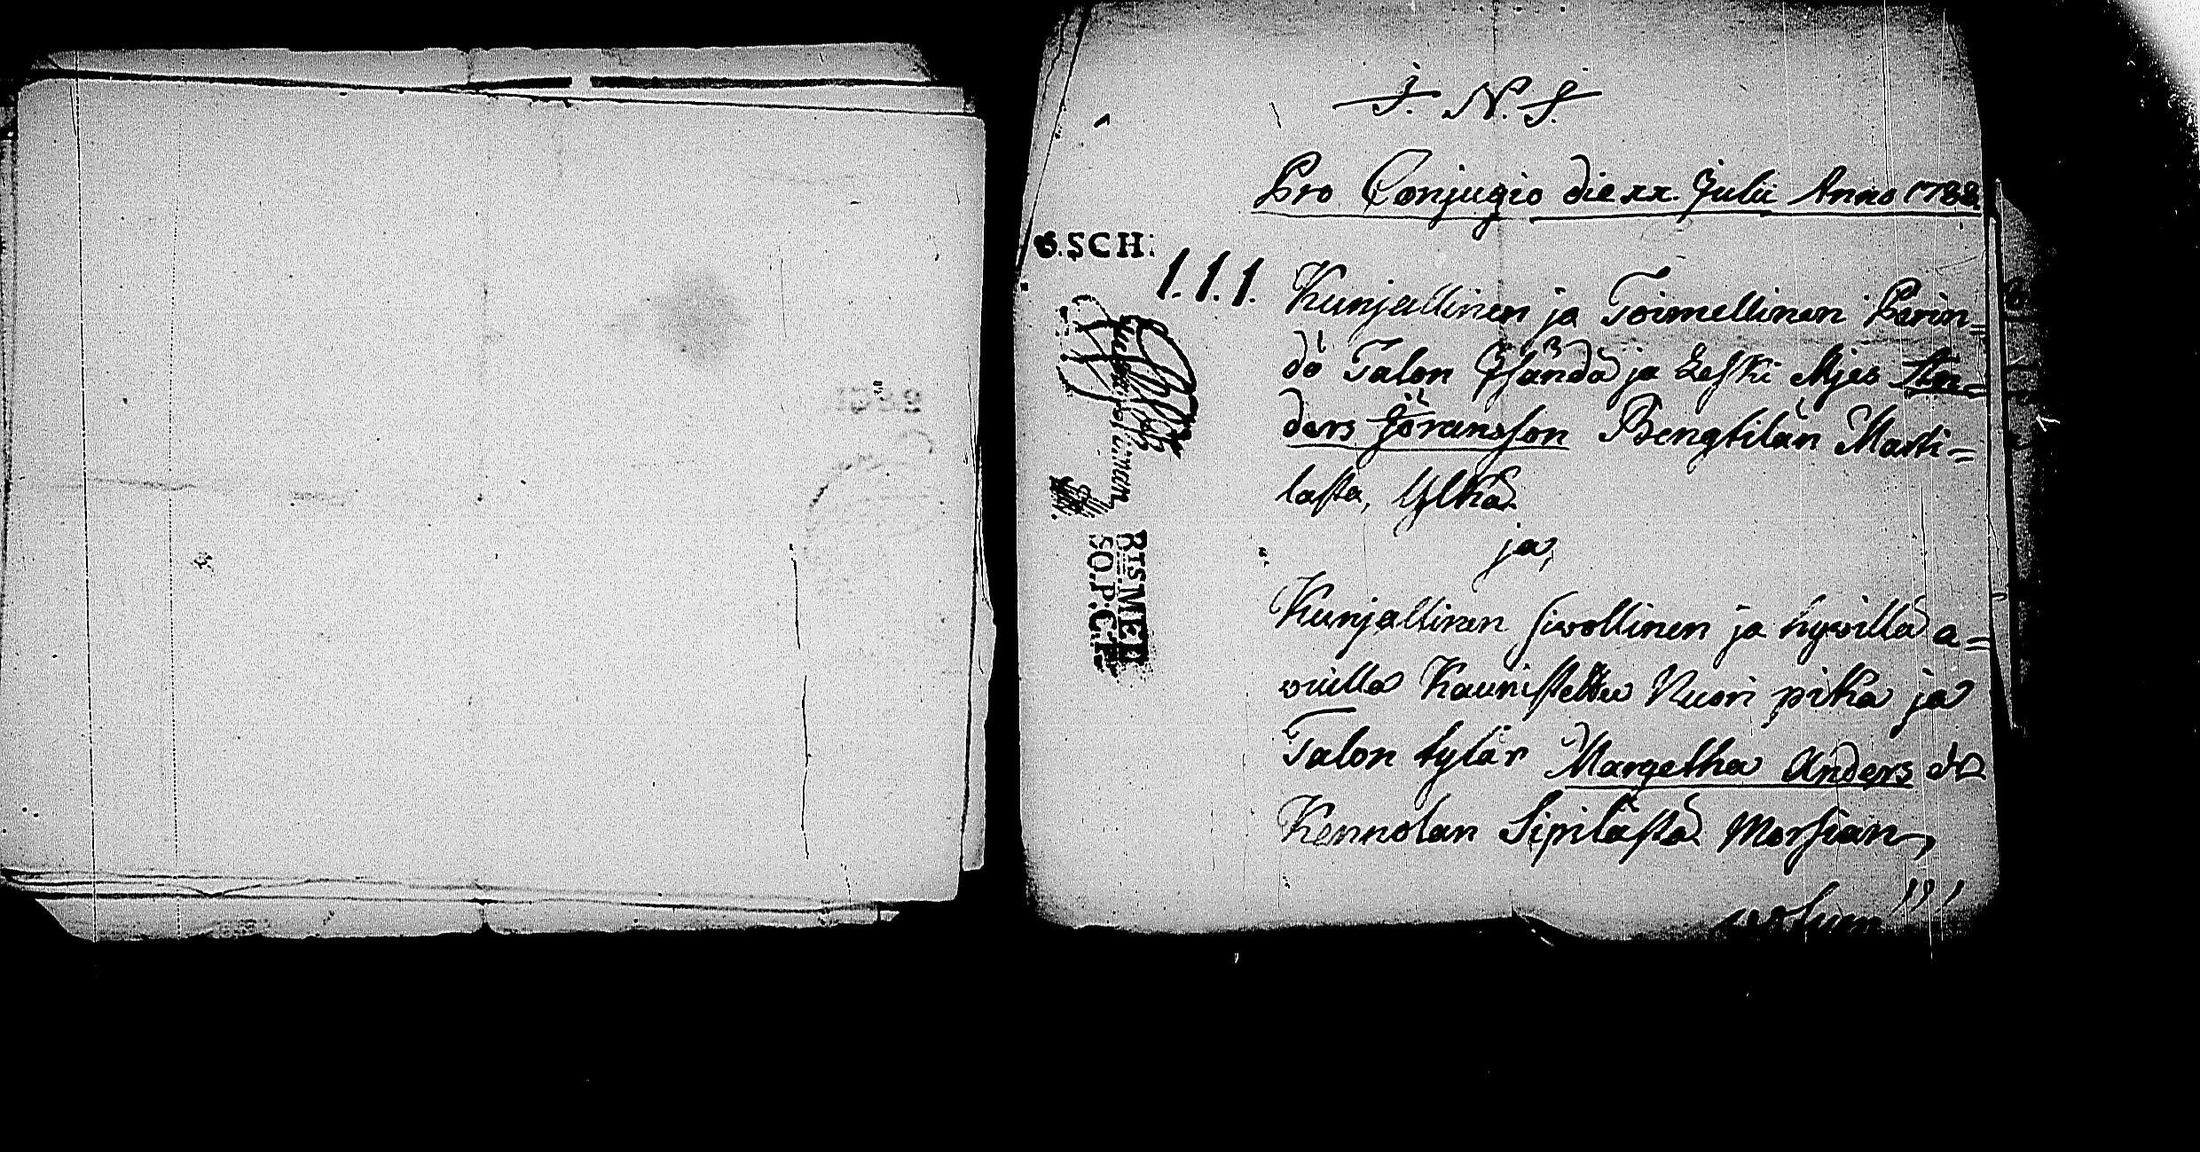 J. N. J.
Pro Conjugio die xx. Julii Anno 1788.
G.SCH:
1.1.1. Kunjallinen ja Toimellinen Perin=
dö Talon Isändä ja Leski Mjes An=
ders Jöransson Bengtilän Marti=
lasta, Ylkä.
ja,
Kunjallinen siwollinen ja hywillä a=
wuilla Kaunistettu Nuori pika ja
Talon tytär Margetha Anders dr
Kennolan Sipilästä Morsian,
RTSMED
SO.P.C.F.